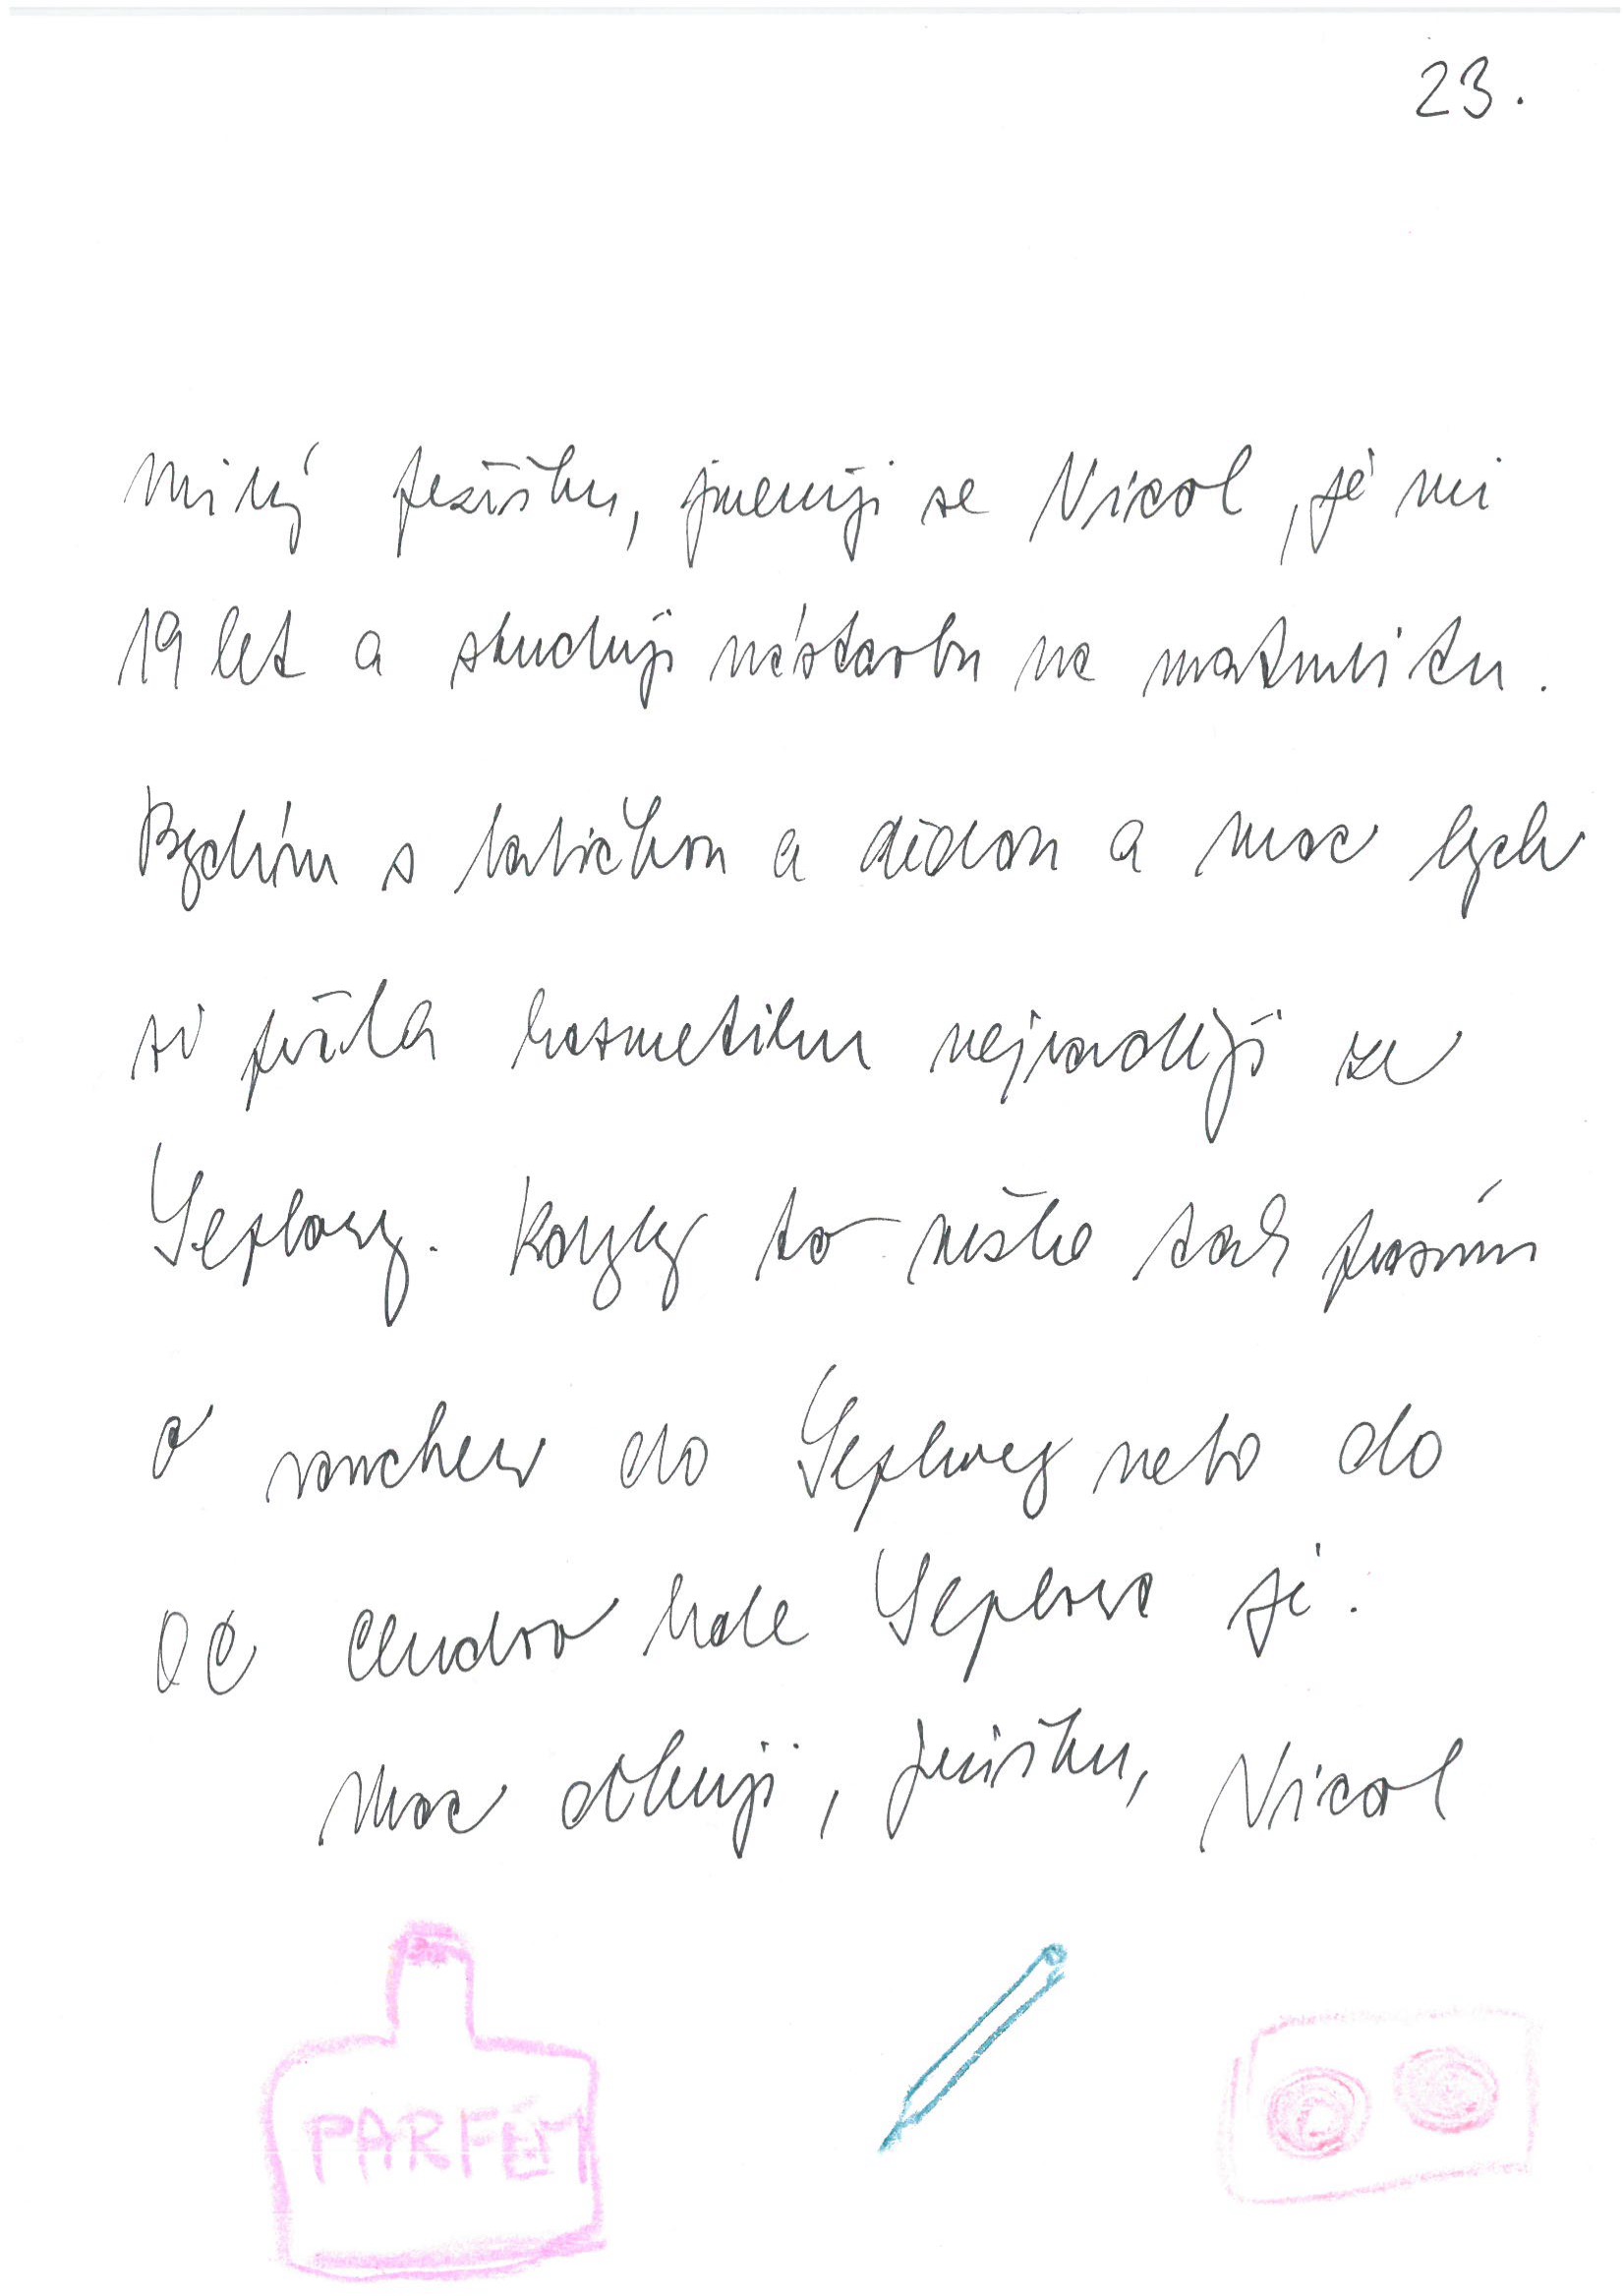 23.
Milý Ježíšku, jmenuji se Nicol, je mi
19 let a studuji nástavbu na maturitu.
Bydlím s babičkou a dědou a moc bych
si přála kosmetiku nejraději ze
Sephory. Kdyby to nešlo tak prosím
o voucher do Sephory nebo do
OC Chodov kde Sephora je.
Moc děkuji, Ježíšku, Nicol
PARFÉM